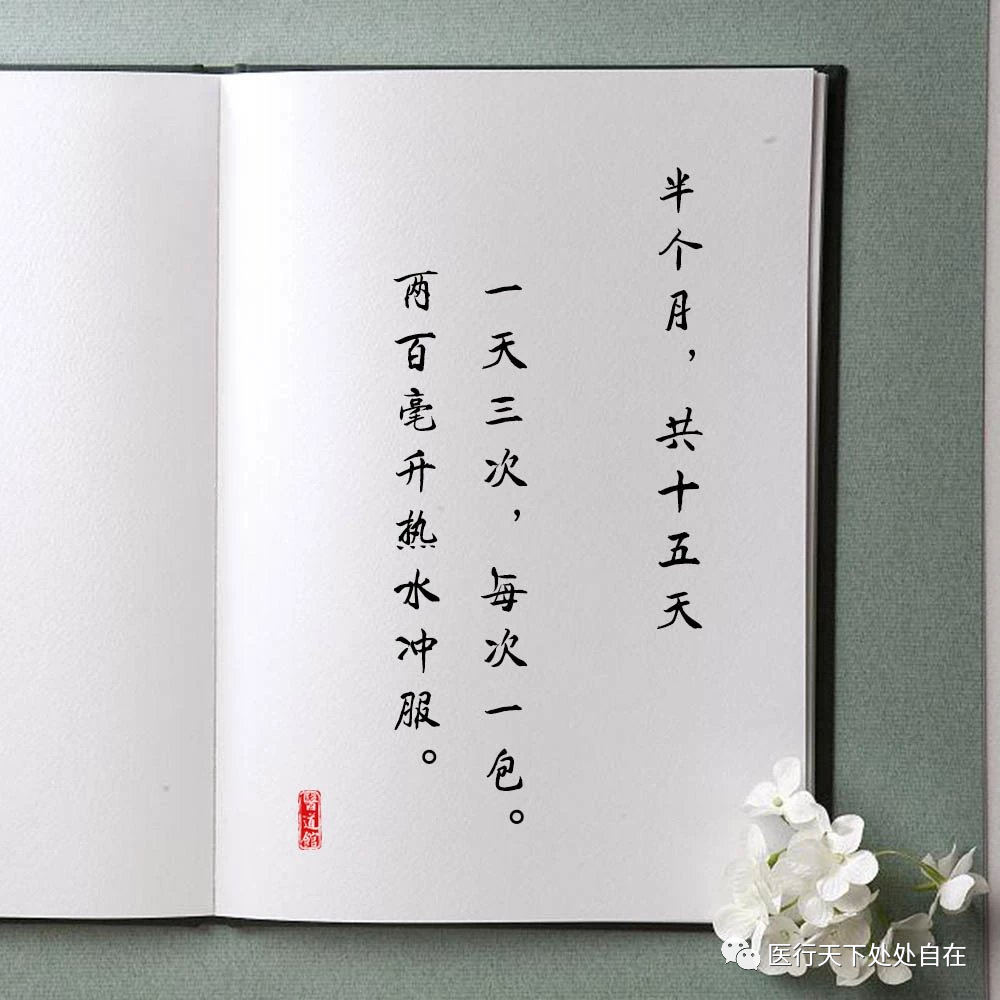 半个月，共十五天
一天三次，每次一包。
两百毫升热水冲服。
醫道館
医行天下处处自在